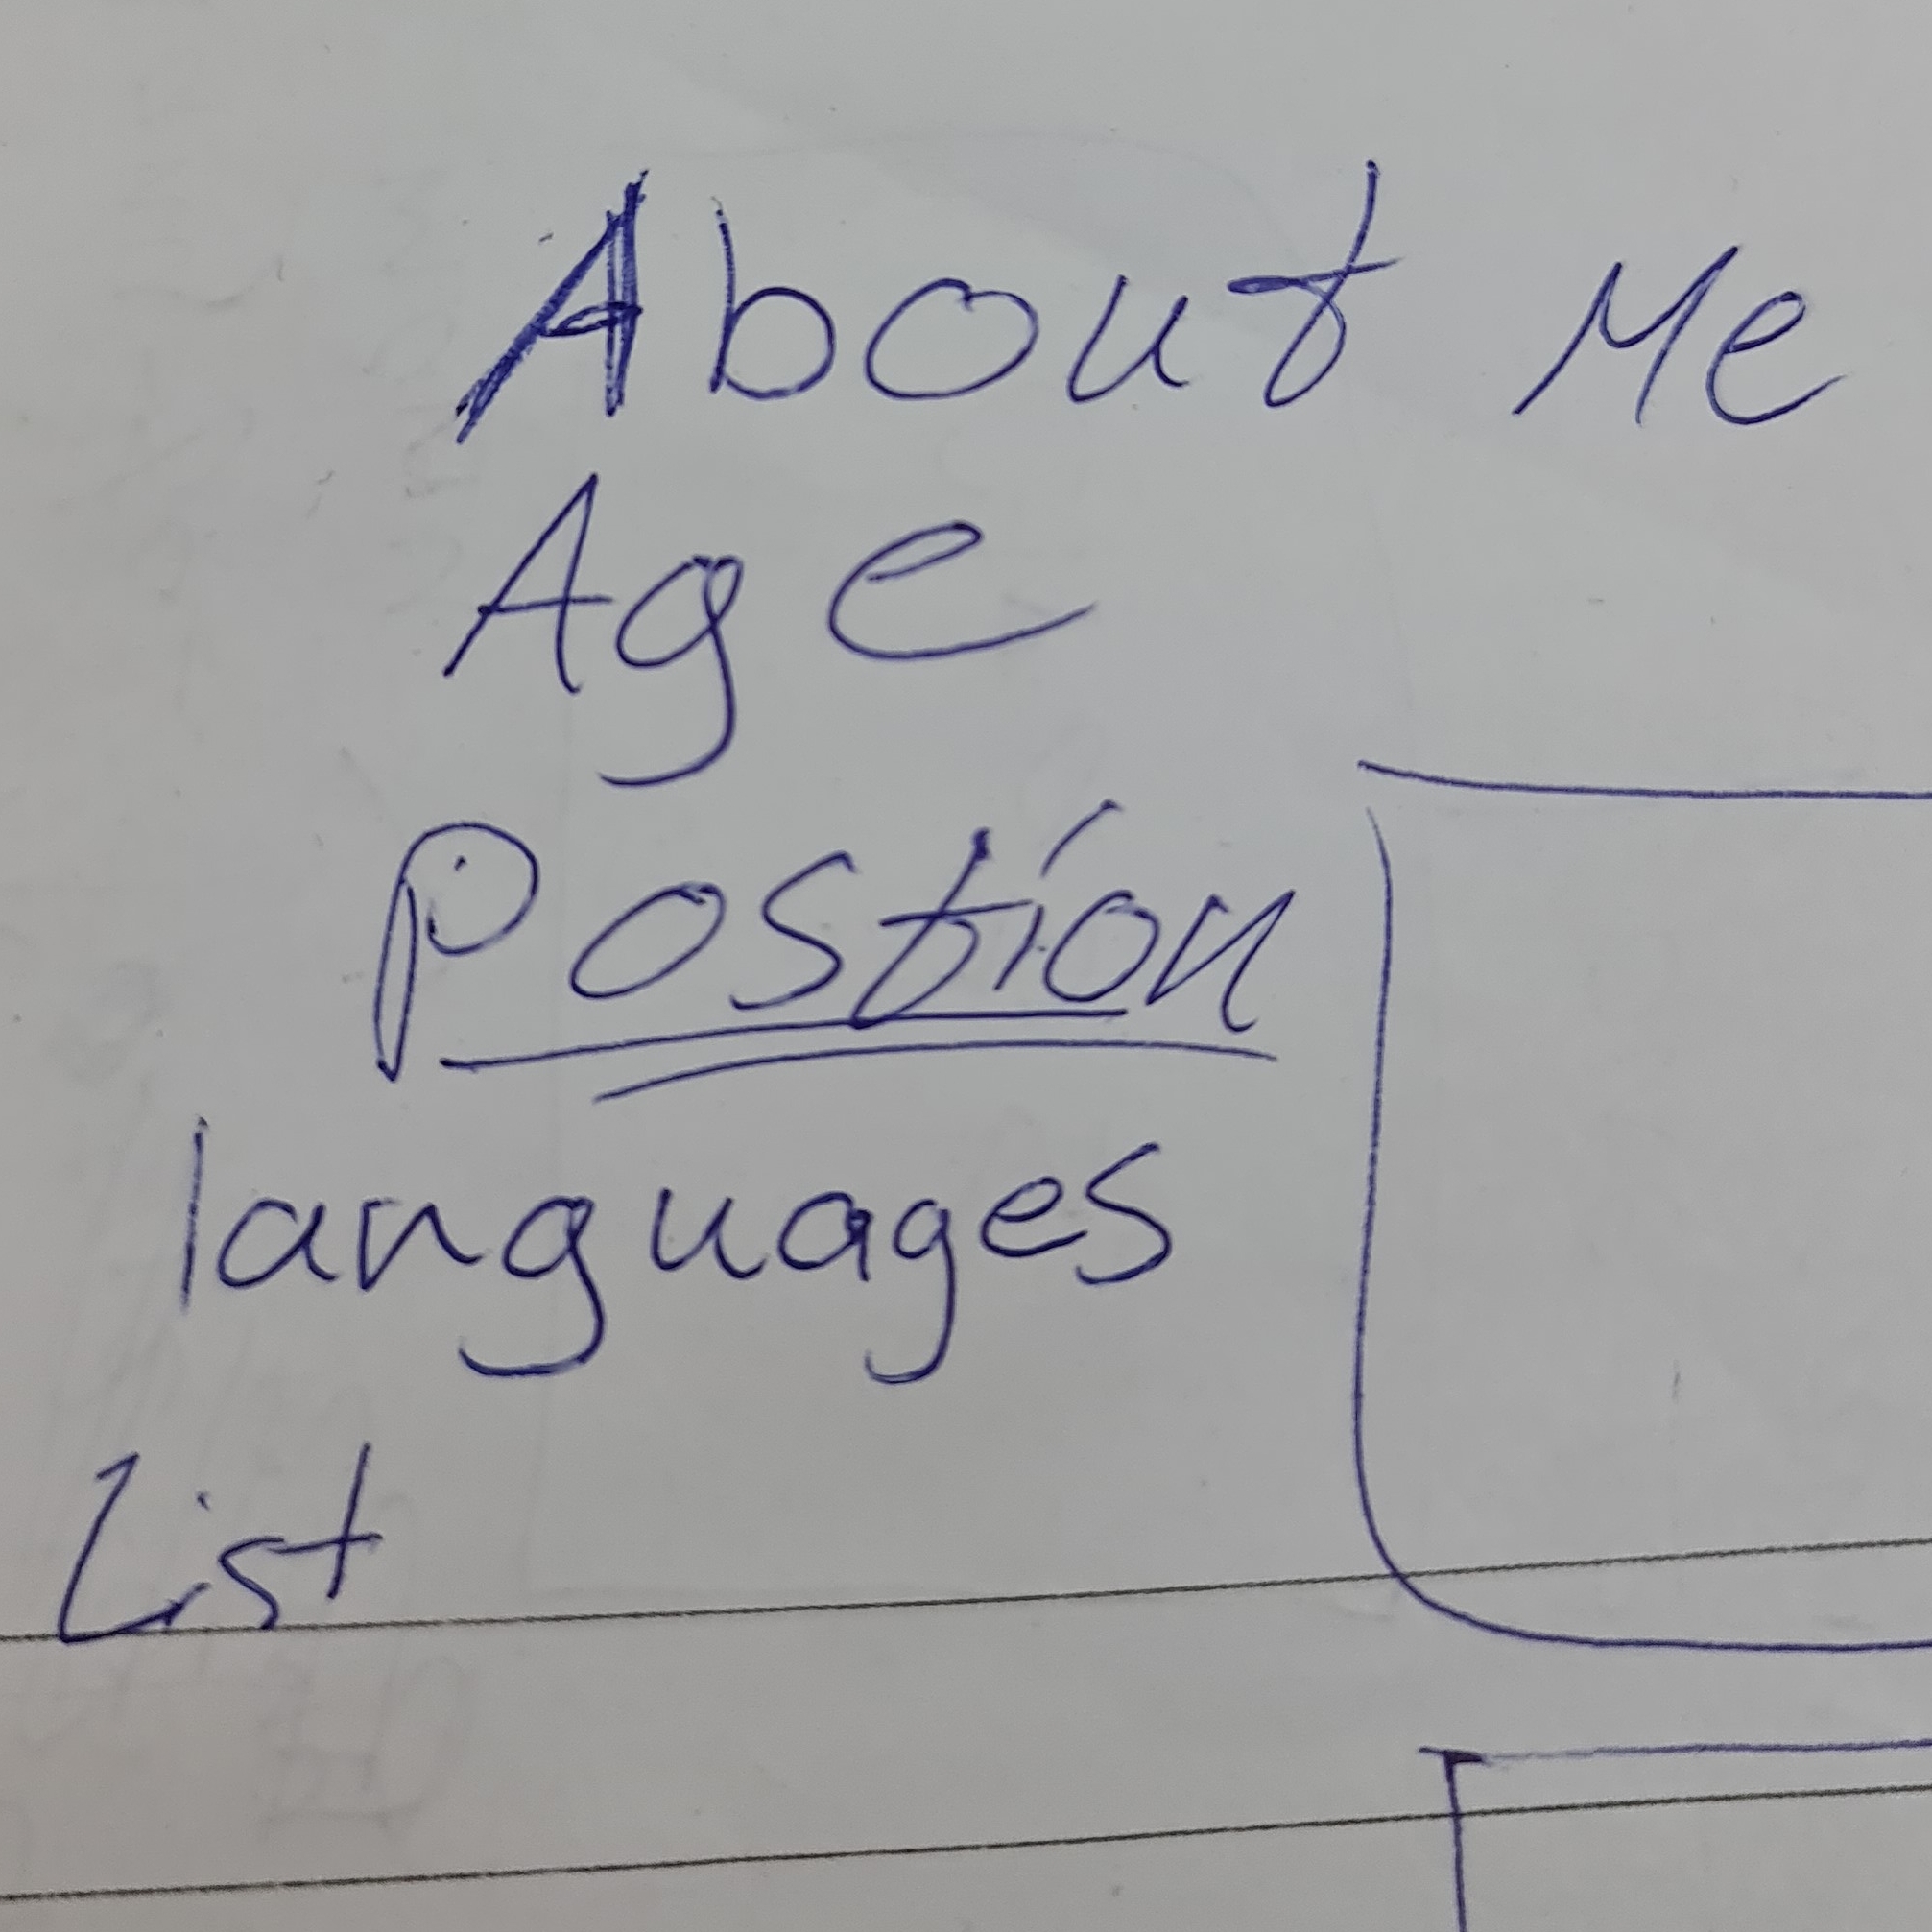 About Me
Age
Postion
languages
List